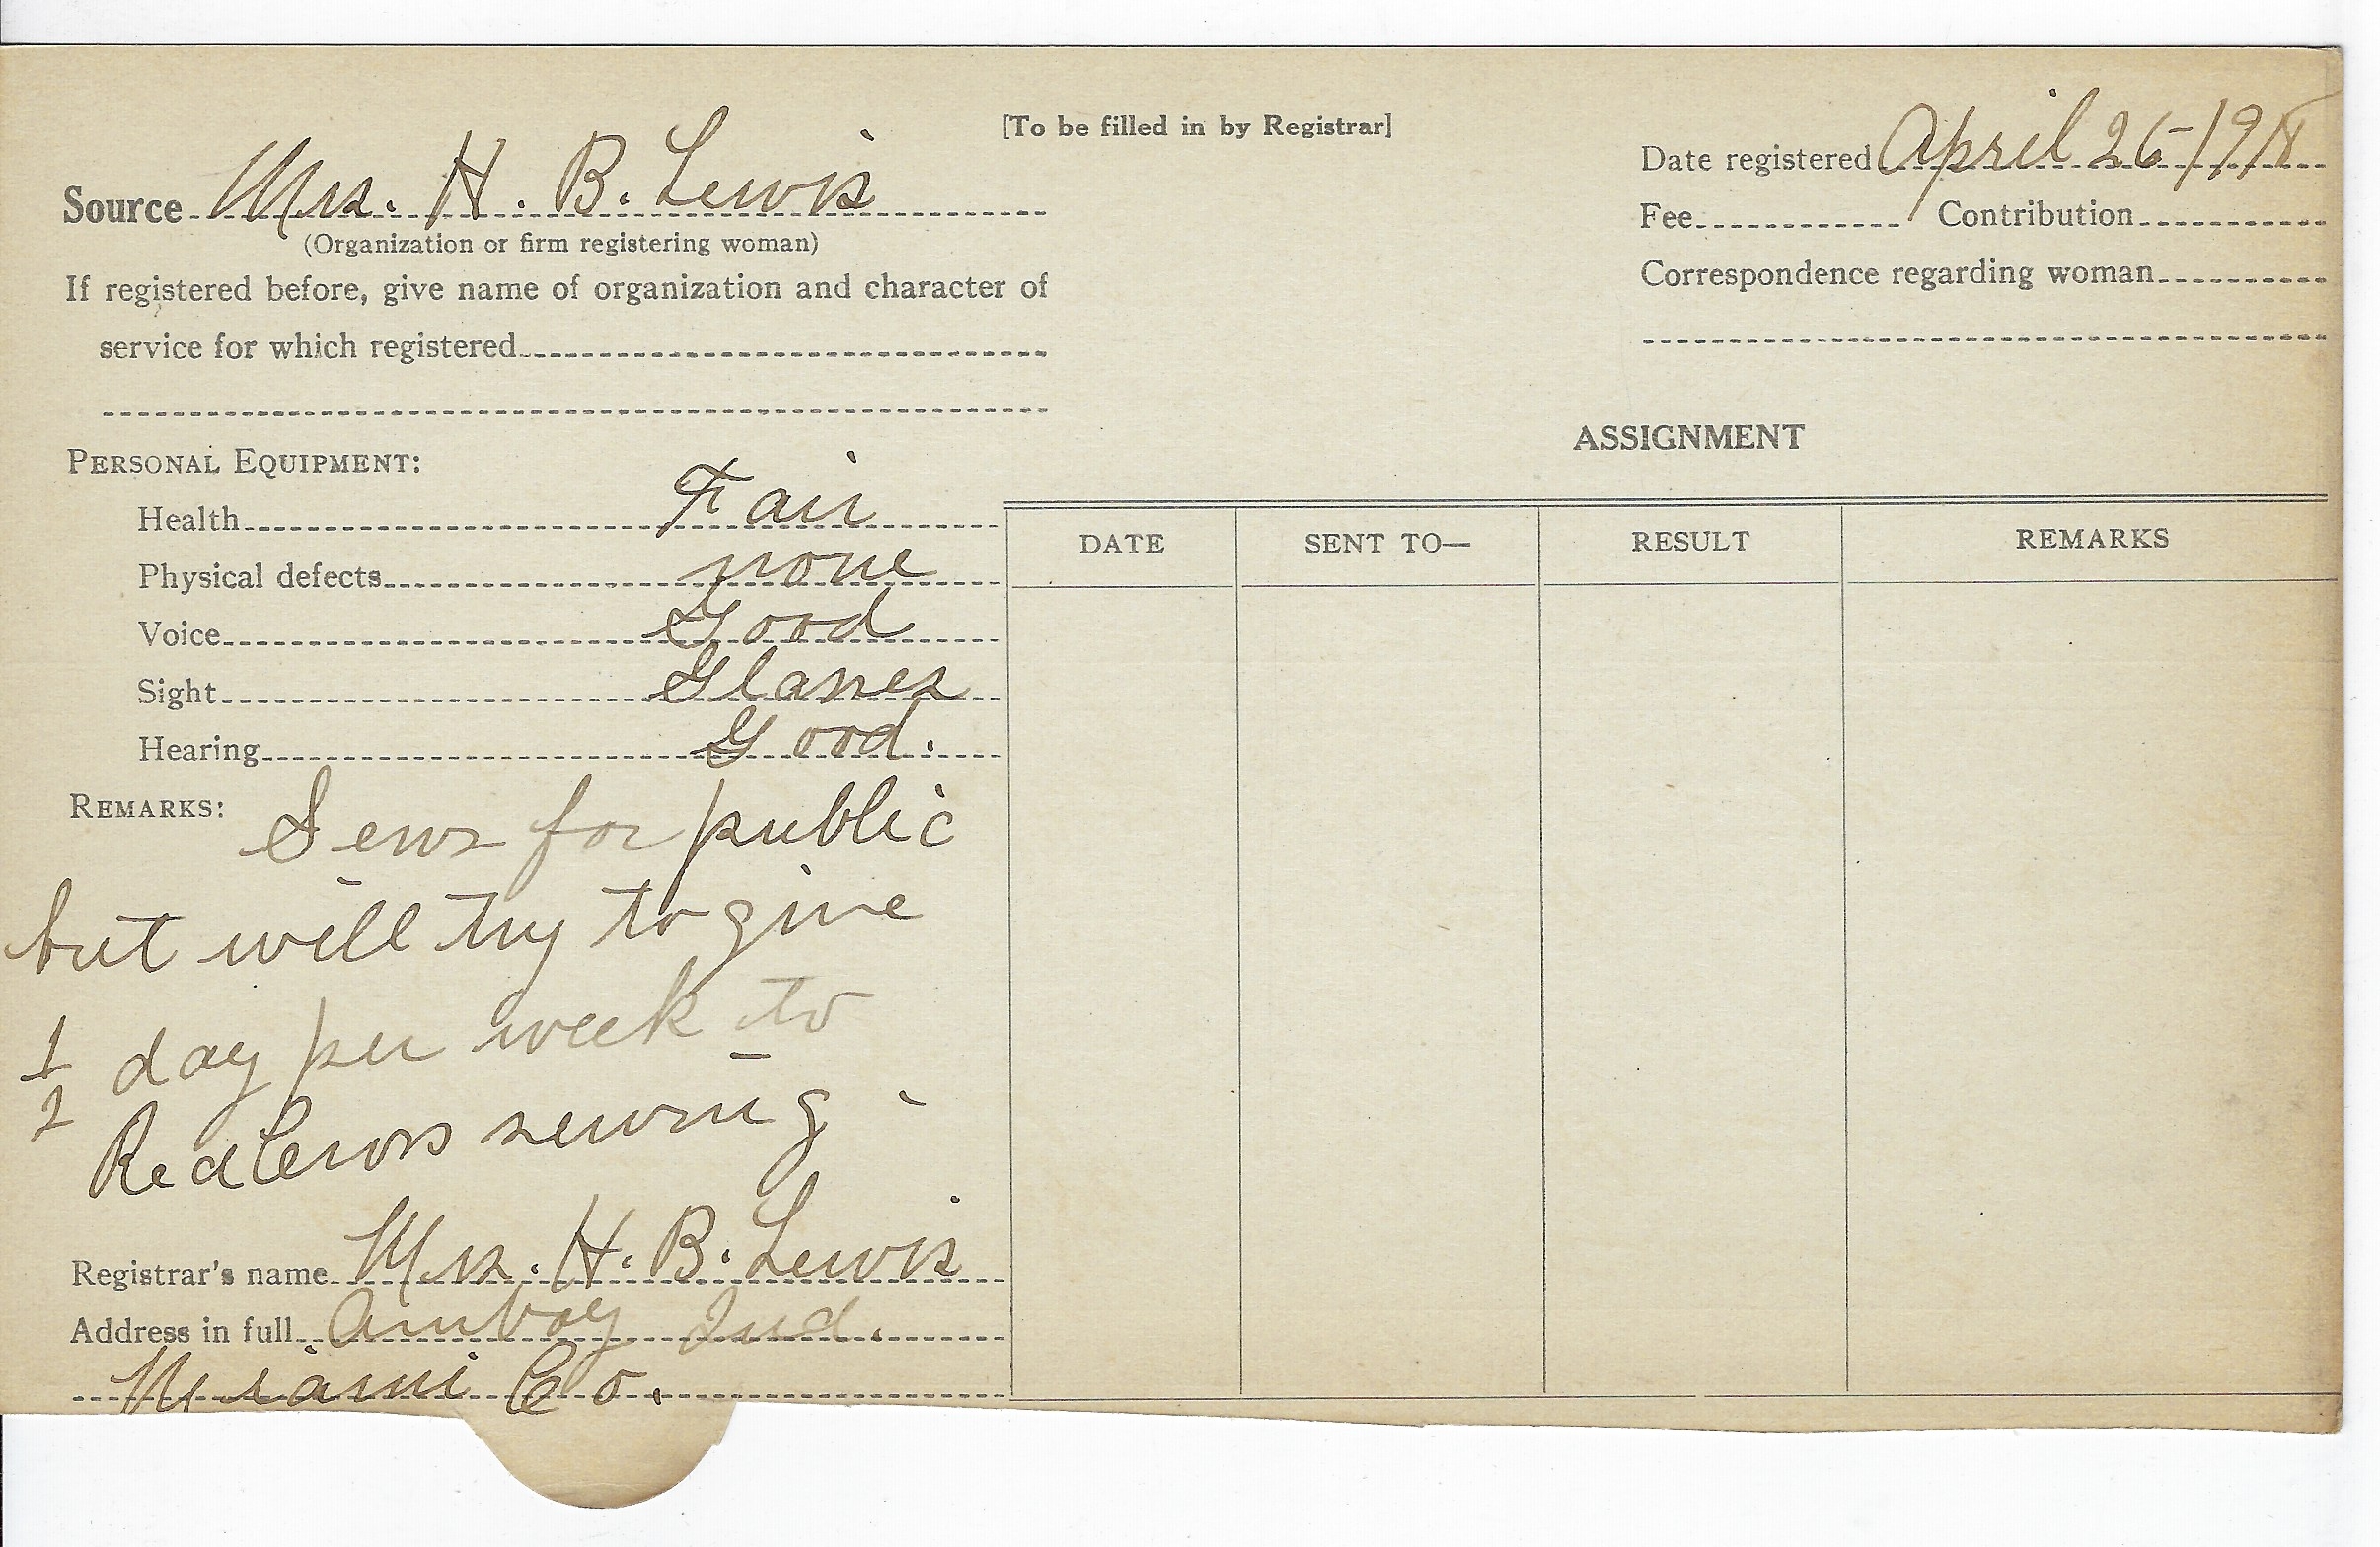 [To be filled in by Registrar]
Source Mrs. H. B. Lewis
(Organization or firm registering woman)
If registered before, give name of organization and character of
service for which registered
Date registered April 26-1918
Fee Contribution
Correspondence regarding woman
PERSONAL EQUIPMENT:
Health Fair
Physical defects none
Voice Good
Sight Glasses
Hearing Good.
REMARKS: Sews for public
but will try to give
1/2 day per week to
Red Cross sewing -
Registrar's name Mrs. H. B. Lewis
Address in full Amboy Ind.
Miami Co.
ASSIGNMENT
DATE SENT TO— RESULT REMARKS